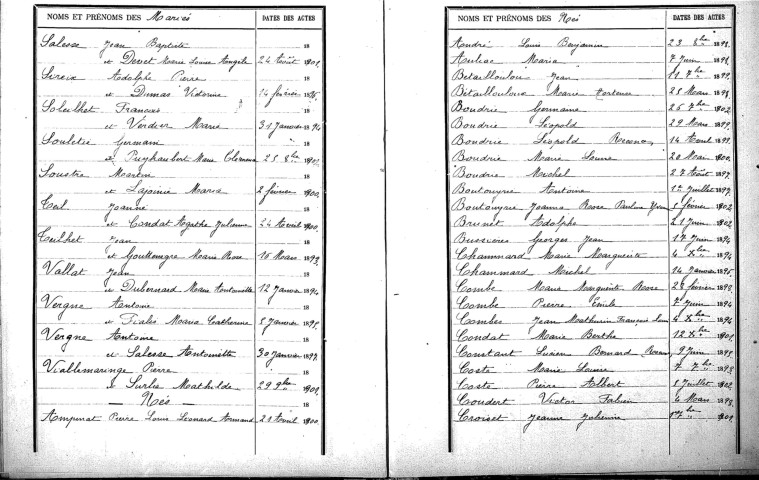 NOMS ET PRÉNOMS DES Mariés DATES DES ACTES
Salesse Jean Baptiste 18
et Devet Marie Louise Angèle 24 Août 1901
Sireix Adolphe Pierre 18
et Dumas Victorine 14 février 18
Soleilhet François 18
et Verdier Marie 31 Janvier 1894
Souletie Germain 18
et Puyhaubert Marie 25 8bre 190
Soustre Martin 18
et Lajoinie Maria 2 février 1900
Teil Jeanne 18
et Condat Agathe Julienne 24 Avril 1900
Teilhet Jean 18
et Marie Rose 16 Mars 1893
Vallat Jean 18
et Dubernard Marie Antoinette 12 Janvier 1894
Vergne Antoine 18
et Fialis Maria Catherine 8 Janvier 1895
Vergne Antoine 18
et Salesse Antoinette 30 Janvier 1897
Viallemaringe Pierre 18
et Surlis Mathilde 29 9bre 1901
— Nés — 18
Ampinat Pierre Louis Léonard Armand 21 Avril 1900
NOMS ET PRÉNOMS DES Nés DATES DES ACTES
André Louis Benjamin 23 8bre 1898
Auliac Maria 7 Juin 1898
Betailloulou Jean 11 7bre 1899
Bétailloulou Marie Hortense 25 Mars 1898
Boudrie Germaine 26 7bre 1902
Boudrie Léopold 29 Mars 1899
Boudrie Léopold 14 Avril 1899
Boudrie Marie Louise 20 Mai 1900
Boudrie Michel 27 Août 1897
Boutouyrie Antoine 12 Juillet 1897
Boutouyrie Jeanne Rose Pauline 5 février 1902
Brunet Adolphe 21 Juin 1902
Bussières Georges Jean 17 Juin 1894
Chammard Marie Marguerite 4 Xbre 1894
Chammard Michel 14 Janvier 1895
Combe Marie Marguerite Rose 28 février 1898
Combe Pierre Emile 7 Juin 1894
Combes Jean Mathurin François Louis 4 Xbre 1894
Condat Marie Berthe 12 Xbre 1901
Constant Lucien Bernard 9 Juin 1898
Coste Marie Louise 7 7bre 1893
Coste Pierre Albert 1 Juillet 1902
Coudert Victor Fabien 4 Mars 1897
Croiset Jeanne Julienne 7bre 1901